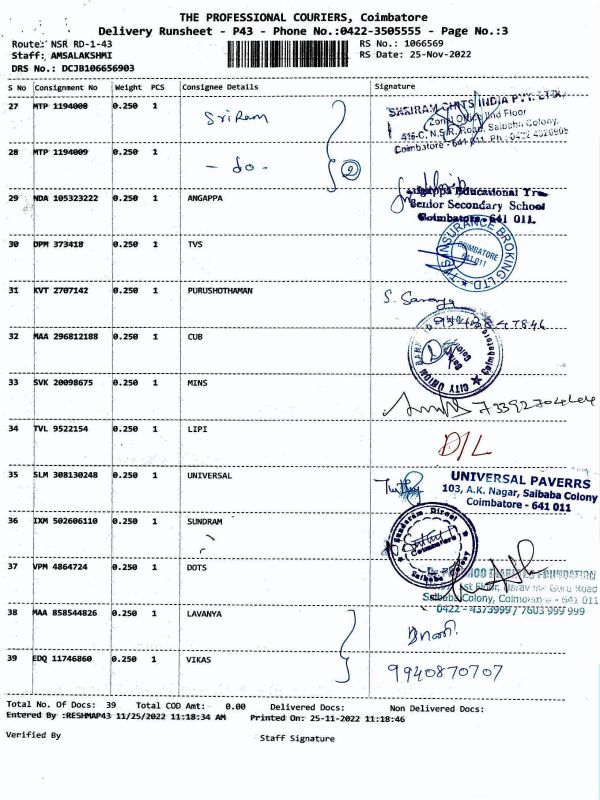 THE PROFESSIONAL COURIERS, Coimbatore
Delivery Runsheet - P43 - Phone No.:0422-3505555 - Page No.:3
Route: NSR RD-1-43 RS No.: 1066569
Staff: AMSALAKSHMI RS Date: 25-Nov-2022
DRS No.: DCJB106656903
S No Consignment No Weight PCS Consignee Details Signature
27 MTP 1194008 0.250 1 Sriram
SHRIRAM CHITS INDIA PVT. LTD.,
Zonal Office IInd Floor
416-C, N.S.R. Road, Saibaba Colony,
Coimbatore - 641 011. Ph : 0422
28 MTP 1194009 0.250 1 - do - 2
29 NDA 105323222 0.250 1 ANGAPPA
Angappa Educational
Senior Secondary School
Coimbatore - 641 011.
30 DPM 373418 0.250 1 TVS
INSURANCE BROKING LTD
COIMBATORE
641 011
31 KVT 2707142 0.250 1 PURUSHOTHAMAN
32 MAA 296812188 0.250 1 CUB
CITY UNION BANK
Coimbatore
33 SVK 20098675 0.250 1 MINS
34 TVL 9522154 0.250 1 LIPI D/L
35 SLM 308130248 0.250 1 UNIVERSAL
UNIVERSAL PAVERRS
103, A.K. Nagar, Saibaba Colony
Coimbatore - 641 011
36 IXM 502606110 0.250 1 SUNDRAM
Sundaram Direct
Coimbatore
Saibaba Colony
37 VPM 4864724 0.250 1 DOTS
FOUNDATION
Guru Road
Saibaba Colony, Coimbatore - 641 011
0422 - 4373999 / 7603 999 999
38 MAA 858544826 0.250 1 LAVANYA
39 EDQ 11746860 0.250 1 VIKAS 9940870707
Total No. Of Docs: 39 Total COD Amt: 0.00 Delivered Docs: Non Delivered Docs:
Entered By :RESHMAP43 11/25/2022 11:18:34 AM Printed On: 25-11-2022 11:18:46
Verified By Staff Signature